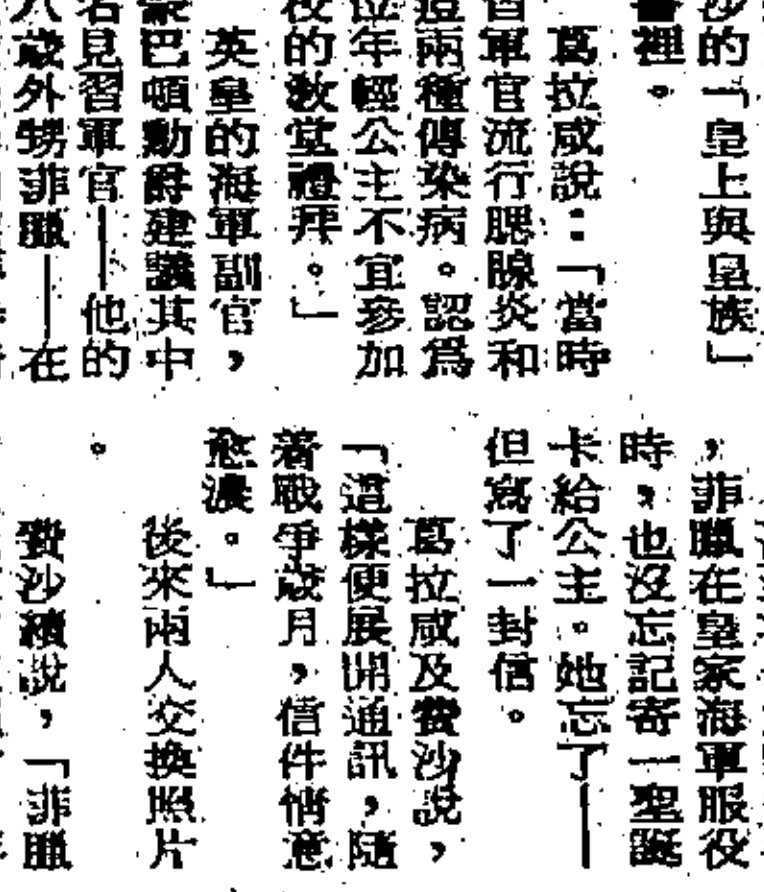 沙的「皇上與皇族」
書裡。
葛拉咸說：「當時
習軍官流行腮腺炎和
兩種傳染病。認爲
位年輕公主不宜參加
役的教堂禮拜。」
英皇的海軍副官，
蒙巴頓勳爵建議其中
名見習軍官——他的
八歲外甥菲臘——在
，菲臘在皇家海軍服役
時，也沒忘記寄一聖誕
卡給公主。她忘了——
但寫了一封信。
葛拉咸及費沙說，
「這樣便展開通訊，隨
着戰爭歲月，信件情意
愈濃。」
後來兩人交換照片
。
費沙續說，「菲臘